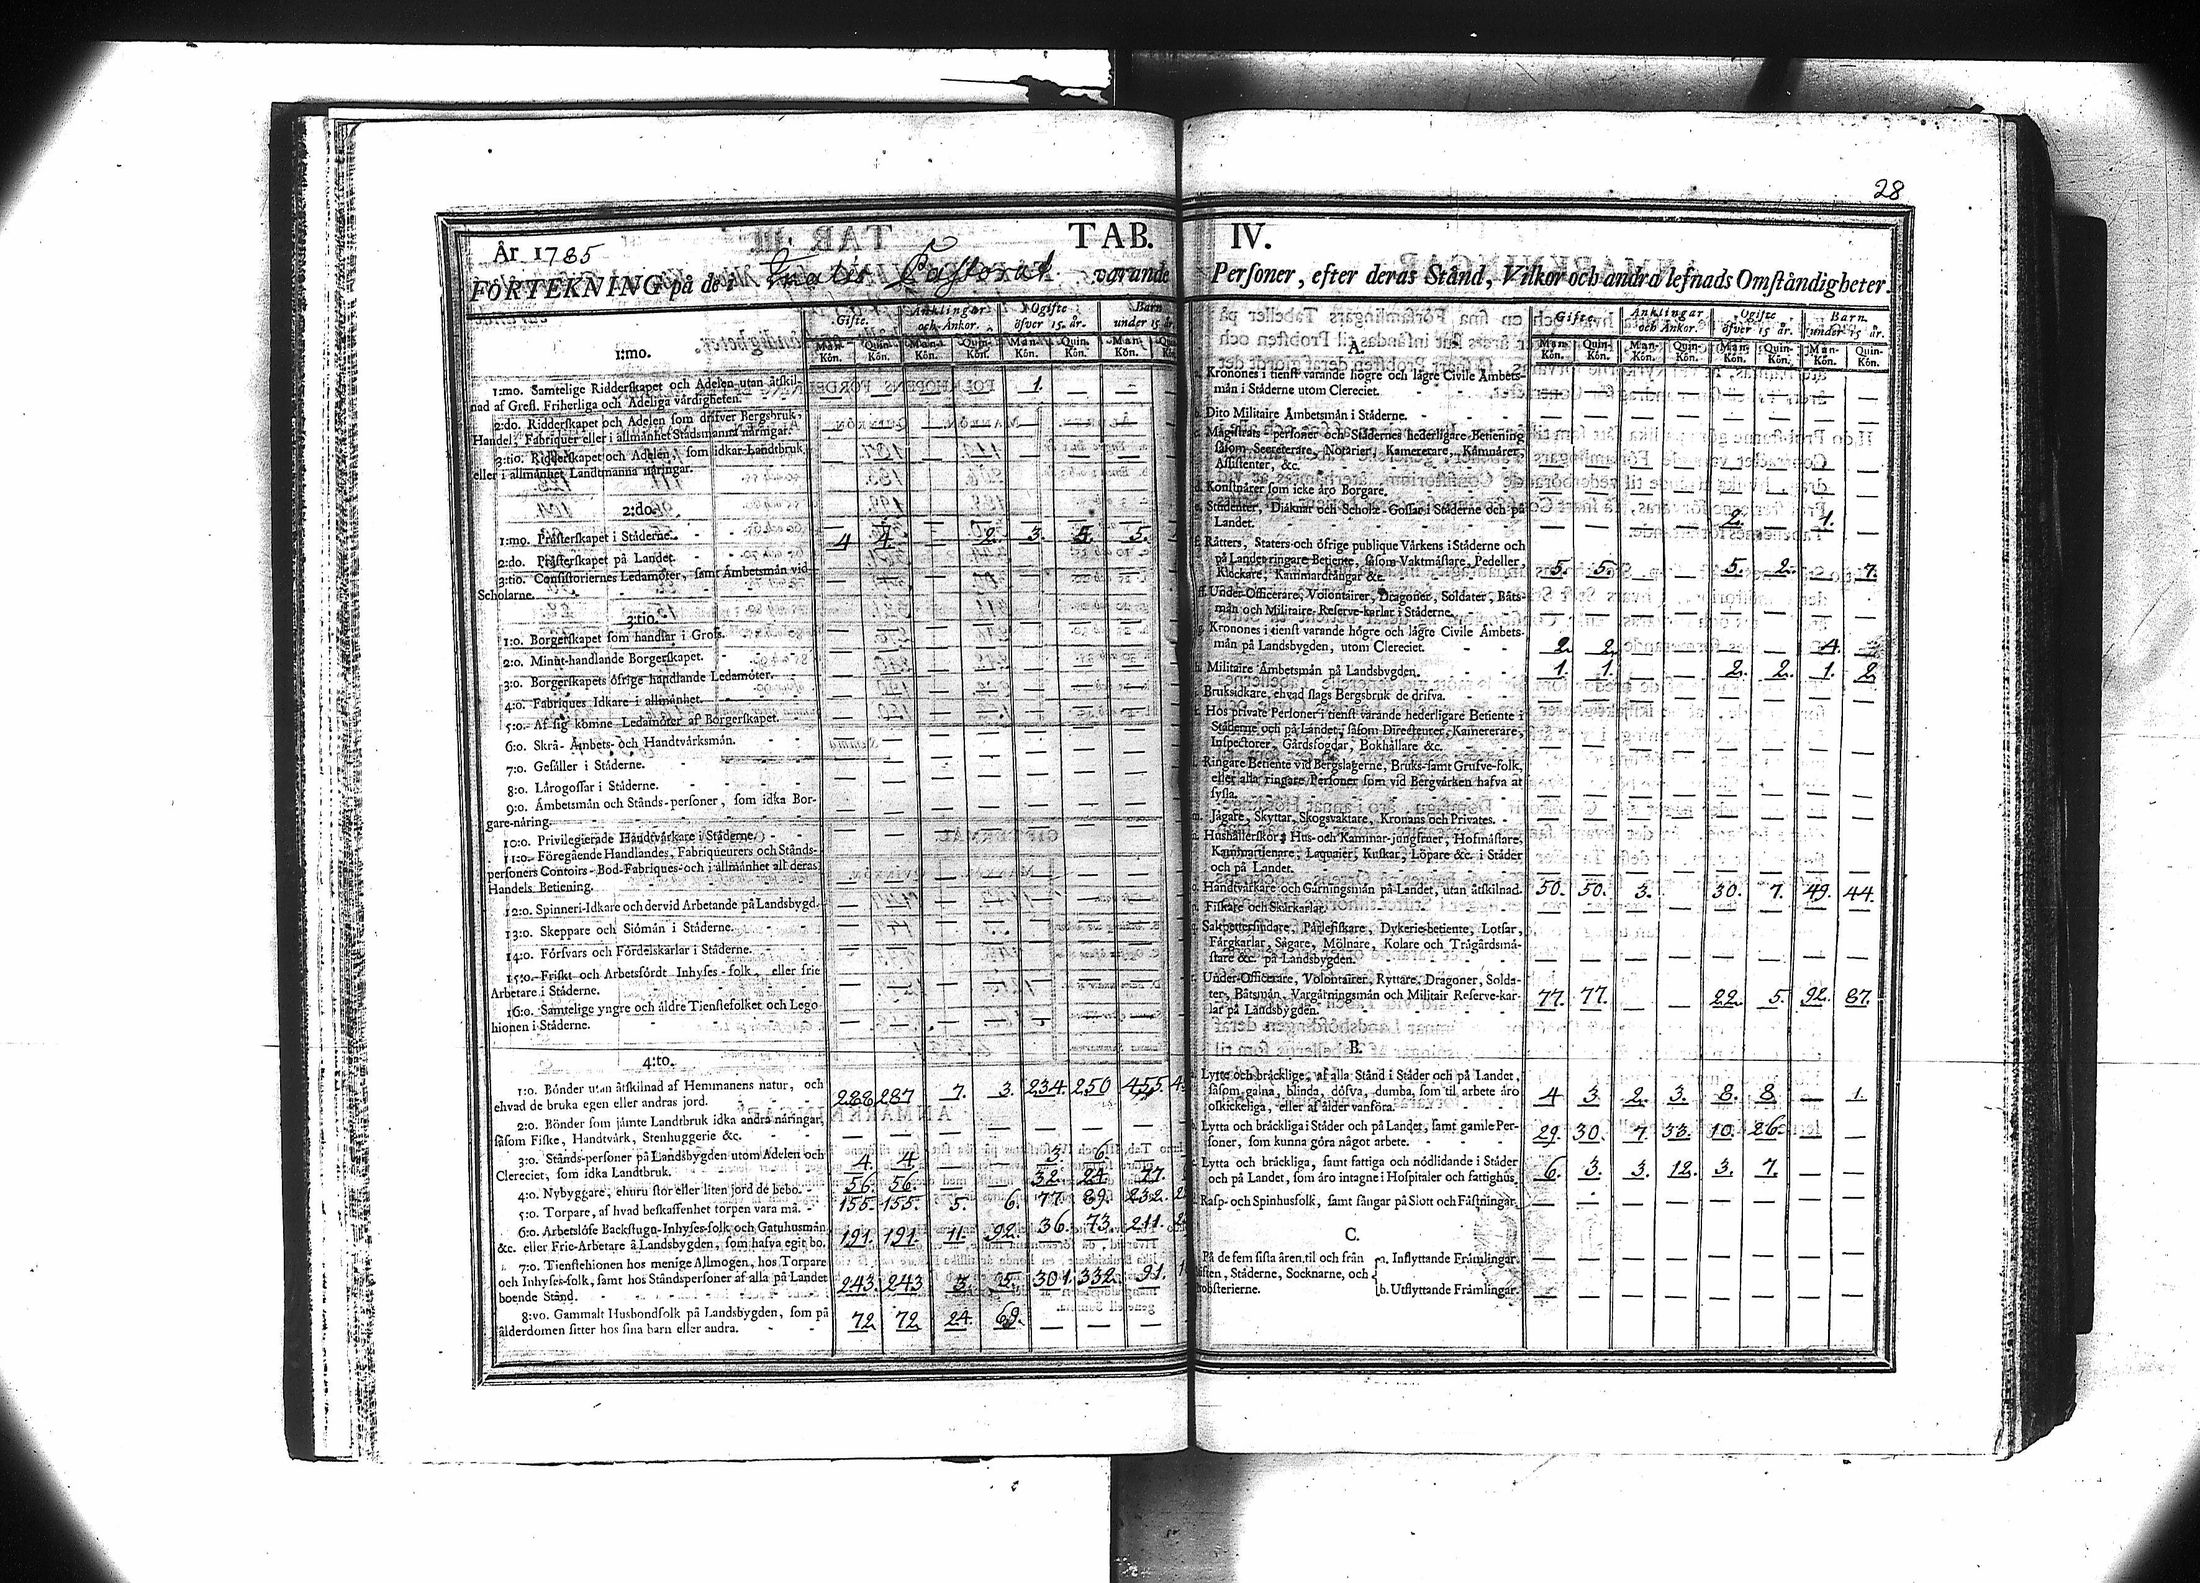 28
År 1785 TAB. IV.
FÖRTEKNING på de i Pastorat varande Personer, efter deras Stånd, Vilkor och andra lefnads Omständigheter.
Gifte. Änklingar och Änkor. Ogifte öfver 15. år. Barn under 15 år.
Man-Kön. Quin-Kön. Man-Kön. Quin-Kön. Man-Kön. Quin-Kön. Man-Kön. Quin-Kön.
1:mo.
1:mo. Samtelige Ridderskapet och Adelen utan åtskil-
nad af Grefl. Friherliga och Adeliga värdigheten. — — — — 1. — —
2:do. Ridderskapet och Adelen som drifver Bergsbruk,
Handel, Fabriquer eller i allmänhet Stadsmanna näringar.
3:tio. Ridderskapet och Adelen, som idkar Landtbruk
eller i allmänhet Landtmanna näringar.
2:do.
1:mo. Prästerskapet i Städerne.
2:do. Prästerskapet på Landet. 4 4. — 2. 3. 5. 5.
3:tio. Consistoriernes Ledamöter, samt Ämbetsmän vid
Scholarne.
3:tio.
1:o. Borgerskapet som handlar i Gross.
2:o. Minut-handlande Borgerskapet.
3:o. Borgerskapets öfrige handlande Ledamöter.
4:o. Fabriques Idkare i allmänhet.
5:o. Af sig komne Ledamöter af Borgerskapet.
6:o. Skrå- Ämbets- och Handtvärksmän.
7:o. Gesäller i Städerne.
8:o. Lärogossar i Städerne.
9:o. Ämbetsmän och Stånds-personer, som idka Bor-
gare-näring.
10:o. Privilegierade Handtvärkare i Städerne
11:o. Föregående Handlandes, Fabriqueurers och Stånds-
personers Contoirs- Bod-Fabriques- och i allmänhet all deras
Handels Betiening.
12:o. Spinneri-Idkare och dervid Arbetande på Landsbygd.
13:o. Skeppare och Siömän i Städerne.
14:o. Försvars och Fördelskarlar i Städerne.
15:o. Friskt och Arbetsfördt Inhyses-folk, eller frie
Arbetare i Städerne.
16:o. Samtelige yngre och äldre Tienstefolket och Lego-
hionen i Städerne.
4:to.
1:o. Bönder utan åtskilnad af Hemmanens natur, och
ehvad de bruka egen eller andras jord. 288 287 7. 3. 234. 250 455.
2:o. Bönder som jämte Landtbruk idka andra näringar,
såsom Fiske, Handtvärk, Stenhuggerie &c. — — — — — — —
3:o. Stånds-personer på Landsbygden utom Adelen och
Clereciet, som idka Landtbruk. 4. 4 — — 3 6. —
4:o. Nybyggare, ehuru stor eller liten jord de bebo. 56. 56. — — 32. 24.
5:o. Torpare, af hvad beskaffenhet torpen vara må. 155. 155. 5. 6. 77. 89. 232.
6:o. Arbetslöse Backstugu-Inhyses-folk och Gatuhusmän
&c. eller Frie-Arbetare å Landsbygden, som hafva eget bo. 191. 191. 11. 92. 36. 73. 211.
7:o. Tienstehionen hos menige Allmogen, hos Torpare
och Inhyses-folk, samt hos Ståndspersoner af alla på Landet
boende Stånd. 243. 243 3 5. 301. 332. 91.
8:vo. Gammalt Husbondsfolk på Landsbygden, som på
ålderdomen sitter hos sina barn eller andra. 72 72 24. 69. — — —
A.
Kronones i tienst varande högre och lägre Civile Ämbets-
män i Städerne utom Clereciet.
Dito Militaire Ämbetsmän i Städerne.
Magistrats-personer och Städernes hederligare Betiening
såsom Secreterare, Notarier, Kamererare, Kämnärer,
Assistenter, &c.
Konstnärer som icke äro Borgare.
Studenter, Djäknar och Schole-Gossar i Städerne och på
Landet. — — — — 2. — 1. —
Rätters, Staters och öfrige publique Värkens i Städerne och
på Landet ringare Betiente, såsom Vaktmästare, Pedeller,
Klockare, Kammardrängar &c. 5. 5. — — 5. 2. — 7.
Under-Officerare, Volontairer, Dragoner, Soldater, Båts-
män och Militaire-Reserve-karlar i Städerne.
Kronones i tienst varande högre och lägre Civile Ämbets-
män på Landsbygden, utom Clereciet. 2. 2. — — — — 4.
Militaire Ämbetsmän på Landsbygden. 1. 1. — — 2. 2. 1. 2
Bruksidkare, ehvad slags Bergsbruk de drifva.
Hos private Personer i tienst varande hederligare Betiente i
Städerne och på Landet, såsom Directeurer, Kamererare,
Inspectorer, Gårdsfogdar, Bokhållare &c.
Ringare Betiente vid Bergslagerne, Bruks-samt Grufve-folk,
eller alla ringare Personer som vid Bergvärken hafva at
sysla.
Jägare, Skyttar, Skogsvaktare, Kronans och Privates.
Hushållerskor, Hus- och Kammar-jungfruer, Hofmästare,
Kammartienare, Laquaier, Kuskar, Löpare &c. i Städer
och på Landet.
Handtvärkare och Gärningsmän på Landet, utan åtskilnad. 50. 50. 3. — 30. 7. 49. 44.
Fiskare och Skärkarlar.
Salpettersiudare, Pärlefiskare, Dykerie-betiente, Lotsar,
Färgkarlar, Sågare, Mölnare, Kolare och Trägårdsmä-
stare &c. på Landsbygden.
Under-Officerare, Volontairer, Ryttare, Dragoner, Solda-
ter, Båtsmän, Vargärningsmän och Militair Reserve-kar-
lar på Landsbygden. 77. 77. — — 22. 5. 92. 87.
B.
Lytte och bräcklige, af alla Stånd i Städer och på Landet,
såsom galna, blinda, döfva, dumba, som til arbete äro
oskickeliga, eller af ålder vanföra. 4 3. 2. 3. 8. 8 — 1.
Lytta och bräckliga i Städer och på Landet, samt gamle Per-
soner, som kunna göra något arbete. 29. 30. 7. 33. 10. 26. — —
Lytta och bräckliga, samt fattiga och nödlidande i Städer
och på Landet, som äro intagne i Hospitaler och fattighus. 6. 3. 3. 12. 3. 7. — —
Rasp- och Spinhusfolk, samt fångar på Slott och Fästningar.
C.
På de fem sista åren til och från
Städerne, Socknarne, och
a. Inflyttande Främlingar.
b. Utflyttande Främlingar.